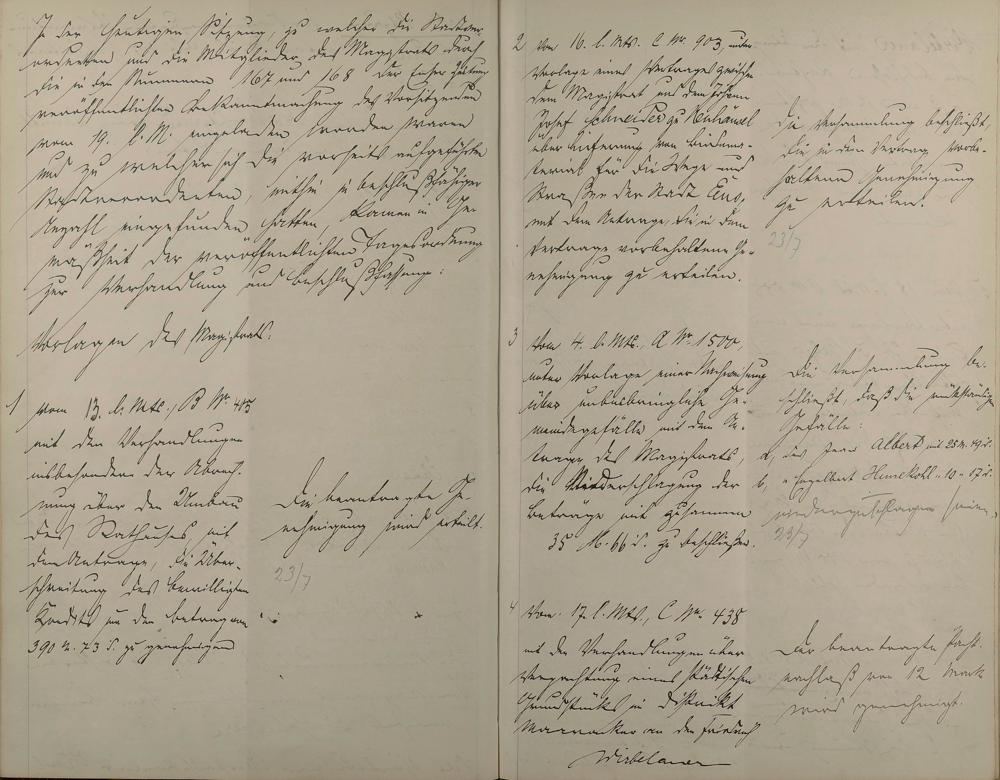 In der heutigen Sitzung, zu welcher die Stadtver-
ordneten und die Mitglieder des Magistrats durch
die in den Nummern 167 und 168 der Emser Zeitung
veröffentlichten Bekanntmachung des Vorsitzenden
vom 19. l. M. eingeladen worden waren
und zu welcher sich die vorseits aufgeführten
Stadtverordneten, mithin in beschlußfähiger
Anzahl eingefunden hatten, kamen in Ge-
mäßheit der veröffentlichten Tagesordnung
zur Verhandlung und Beschlußfassung:
Vorlagen des Magistrats:
1 vom 13. l. Mts., B Nr. 415
mit den Verhandlungen
insbesondere der Abrech-
nung über den Umbau
des Rathauses mit
dem Antrage, die Über-
schreitung des bewilligten
Kredits um den Betrag von
390 M. 73 d. zu genehmigen
Die beantragte Ge-
nehmigung wird erteilt.
23/7
2 vom 16. l. Mts. C Nr. 903, unter
Vorlage eines Vertrages zwischen
dem Magistrat und dem
Josef Schneider zu
über Lieferung von
terial für die Wege und
Straßen der Stadt Ems,
mit dem Antrage, die in dem
Vertrage vorbehaltene Ge-
nehmigung zu erteilen.
Die Versammlung beschließt,
die in dem Vertrag vorbe-
haltene Genehmigung
zu erteilen.
23/7
3 vom 4. l. Mts., A Nr. 1500,
unter Vorlage einer Nachweisung
über unbeibringliche Ge-
meindegefälle mit dem An-
trage des Magistrats,
die Niederschlagung der
Beträge mit zusammen
35 M. 66 d. zu beschließen.
Die Versammlung be-
schließt, daß die rückständigen
Gefälle:
a, des Albert mit 25 M. 49 d.
b, " Engelbert " 10 " 17 d.
niederzuschlagen seien.
23/7
4 vom 17. l. Mts., C Nr. 438
mit den Verhandlungen über
Verpachtung eines städtischen
Grundstücks im Distrikt
an den
Der beantragte Pacht-
nachlaß von 12 Mark
wird genehmigt.